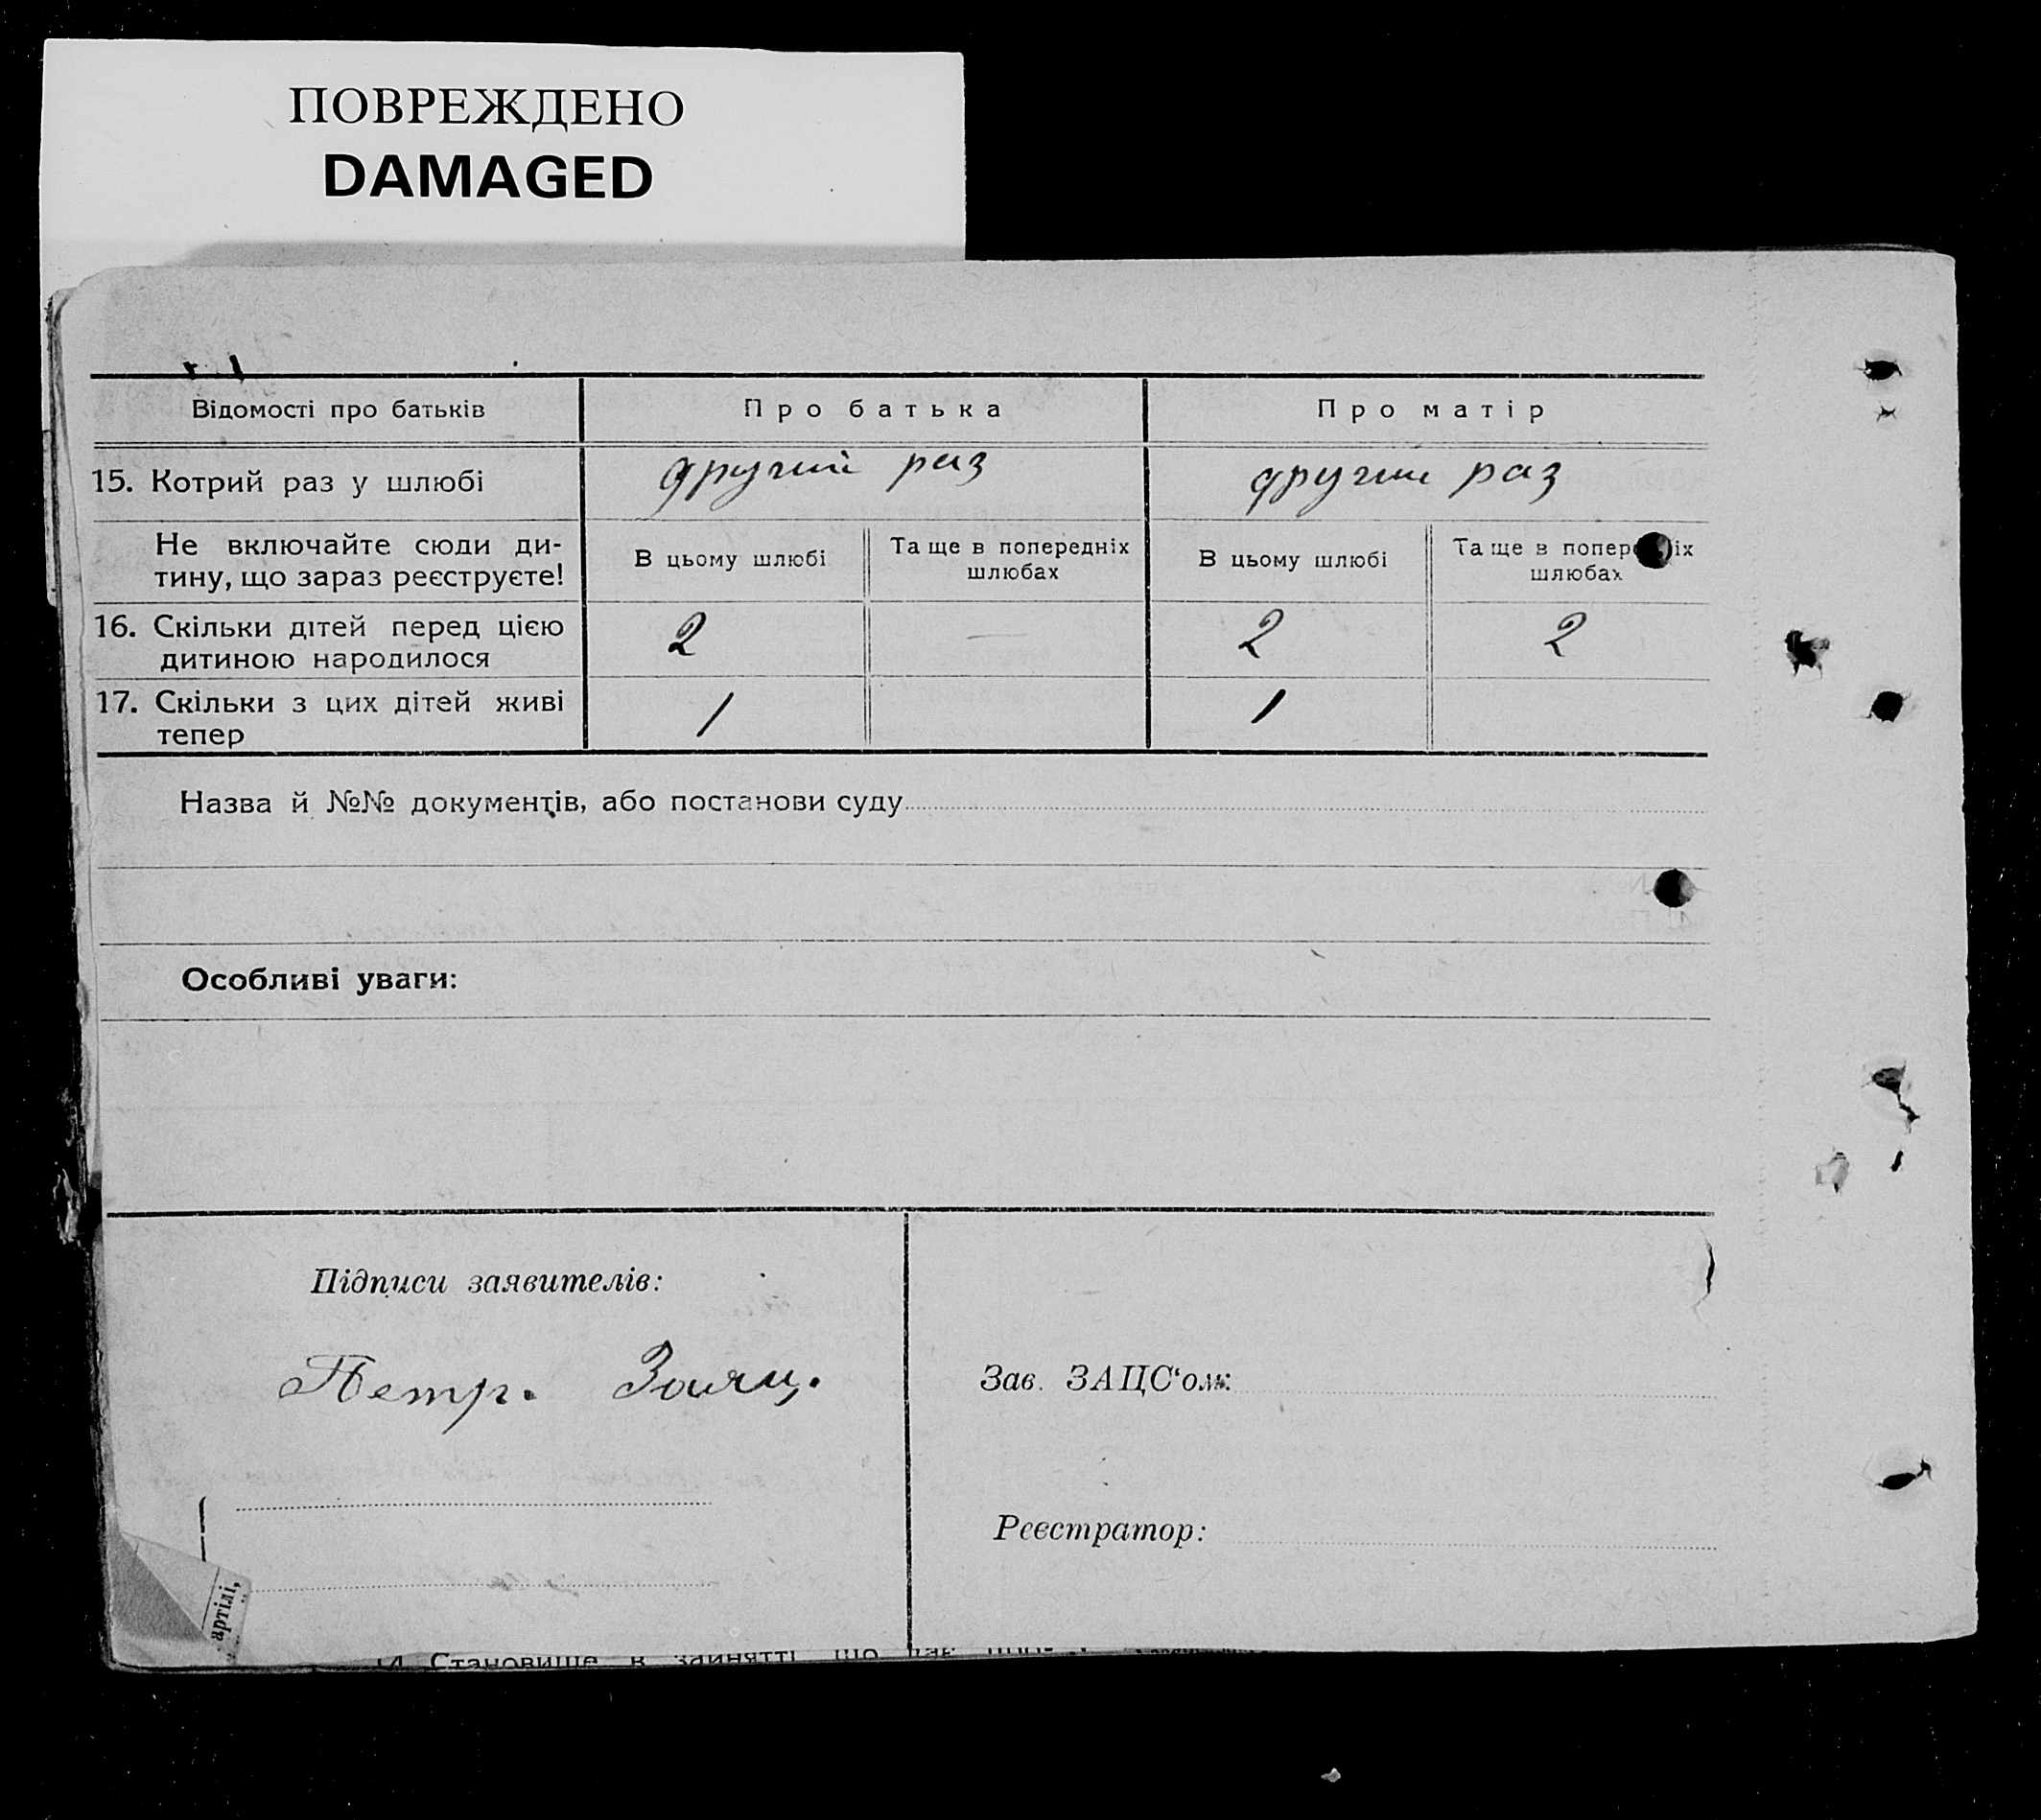 ПОВРЕЖДЕНО
DAMAGED
Відомості про батьків
Про батька
Про матір
15. Котрий раз у шлюбі
другий раз
другий раз
Не включайте сюди ди-
тину, що зараз реєструєте!
В цьому шлюбі
Та ще в попередніх
шлюбах
В цьому шлюбі
Та ще в попер іх
шлюбах
16. Скільки дітей перед цією
дитиною народилося
2
—
2
2
17. Скільки з цих дітей живі
тепер
1
1
Назва й №№ документів, або постанови суду
Особливі уваги:
Підписи заявителів:
Петр. Заяц.
Зав. ЗАЦС‘ом:
Реєстратор:
артілі,
14 Становище в занятті, що дає